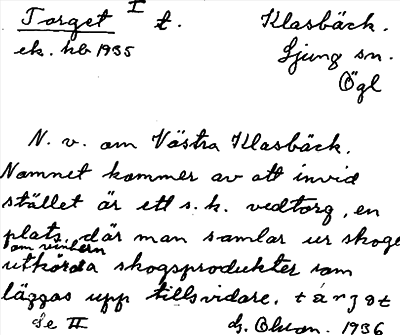 Torget I t. Klasbäck.
ek. kb 1935 Ljung sn.
Ögl
N. v. om Västra Klasbäck.
Namnet kommer av att invid
stället är ett s. k. vedtorg, en
plats, där man samlar ur skoge
om vintern
utkörda skogsprodukter som
läggas upp tillsvidare. tárjət
Se II G. Olson. 1936